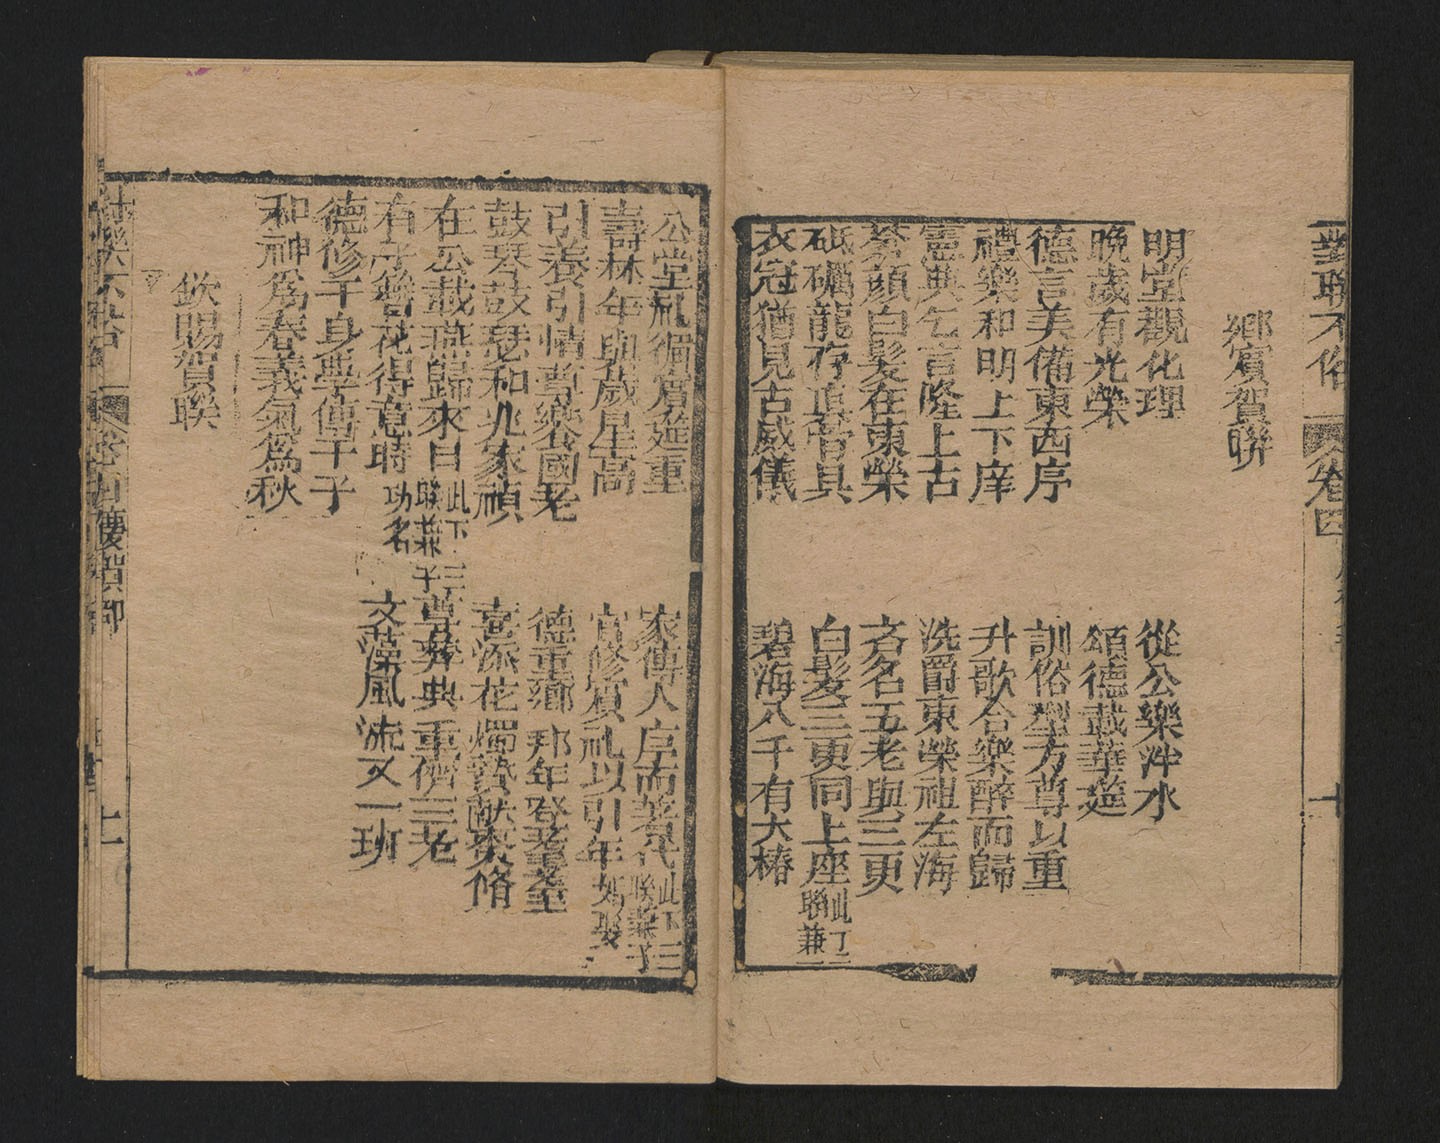 對聯不俗 卷四 十
鄉賓賀聯
明堂觀化理 從公樂泮水
晚歲有光榮 頌德載華筵
德言美備東西序 訓俗型方尊以重
禮樂和明上下庠 升歌合樂醉而歸
憲典乞言隆上古 洗爵東榮祖左海
蒼顏白髮在東榮 齊名五老與三更
砥礪龍存頂骨具 白髮三更同上座 此丁二聯兼
衣冠猶見古威儀 碧海八千有大椿
公堂礼獨賓筵重 家傳人序而著代 此下三聯兼子
壽林年與歲星高 賓修賓礼以引年 娶
引養引情尊國老 德重鄉邦年登耋
鼓琴鼓瑟和兆家禎 喜添花燭贄獻束脩
在公載燕歸來日 此下二聯兼子 尊彝典重儕三老
有子簪花得意時 功名 文藻風流又一班
德修于身學傳于子
和神為春義氣為秋
欽賜賀聯